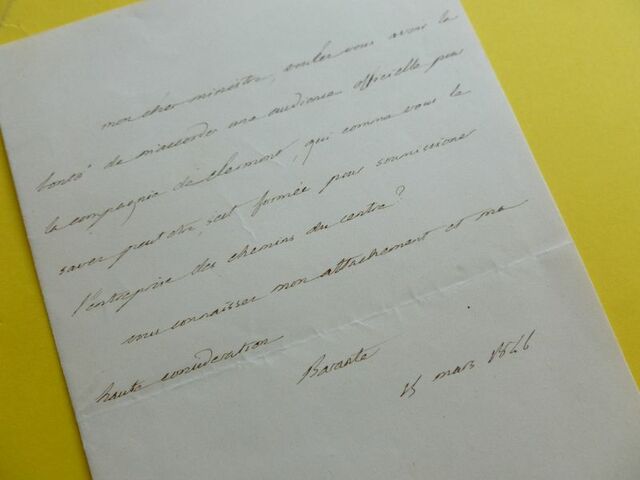 mon cher ministre, voulez vous avoir la
bonté de m'accorder une audience officielle pour
la compagnie de clermont, qui comme vous le
savez peut etre, s'est formée pour soumissioner
l'entreprise des chemins du centre?
vous connaissez mon attachement et ma
haute consideration
Barante
15 mars 1846